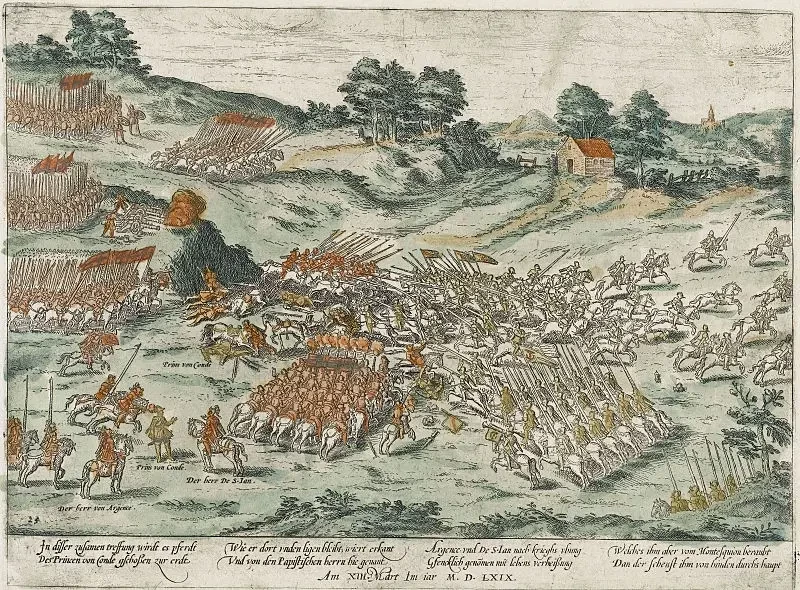 Prinz von Conde
Prin von Conde
Der herr De S. Ian.
Der herr von Argence
24
In disser zusamen treffung wirdt es pferdt
Des Princen von Conde gschossen zur erdt
Wie er dort vnden ligen bleibt, wiert erkant
Vnd von den Papistischen herrn hie genant
Argence vnd De S. Ian nach kriegs vbung
Gfencklich genomen mit lebens verheissung
Welches ihm aber vom Montesquiou beraubt
Dan der schenst ihm von hinden durchs haupt
Am XIII Mart Im iar M. D. LXIX.